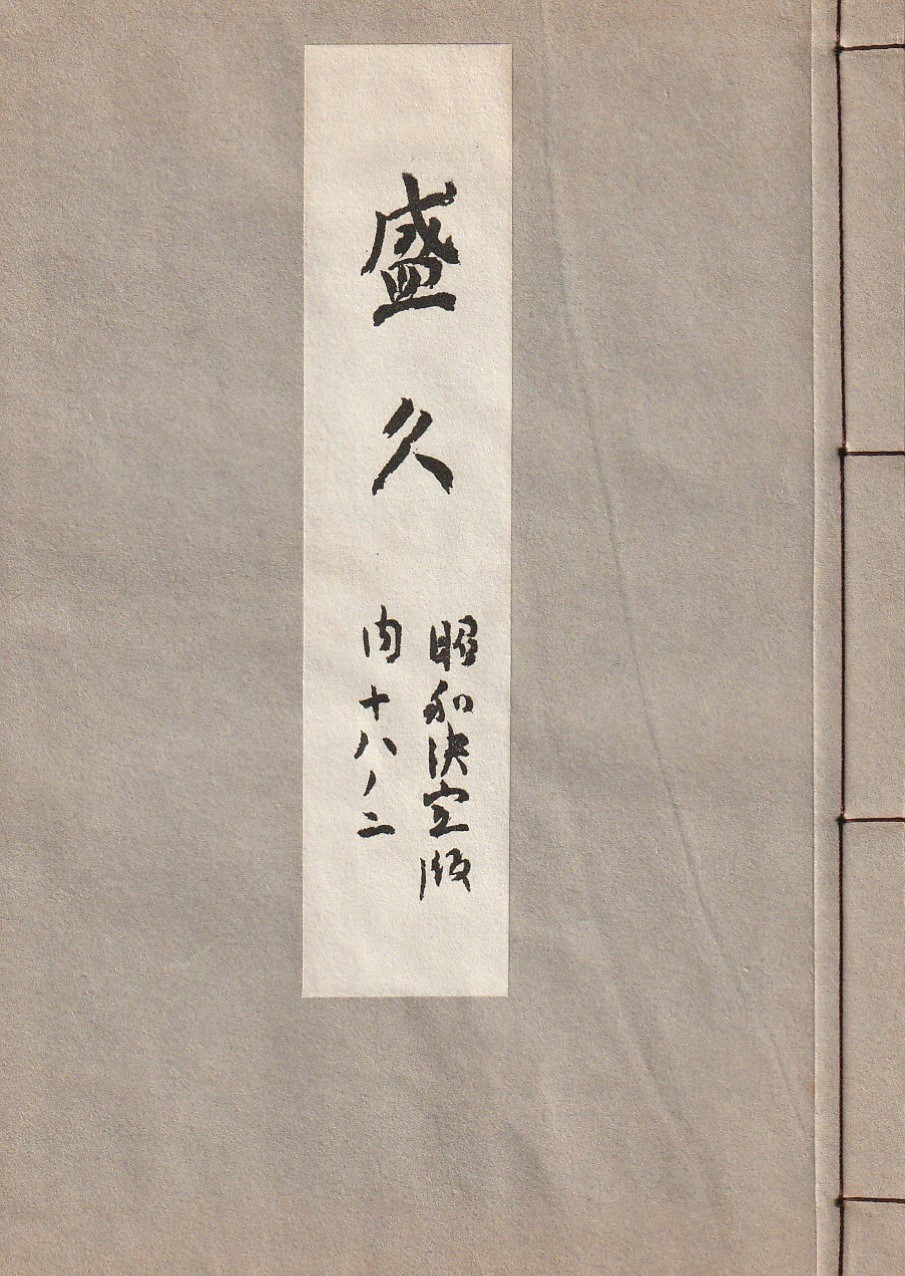 盛久
昭和決定版
内十八ノ二